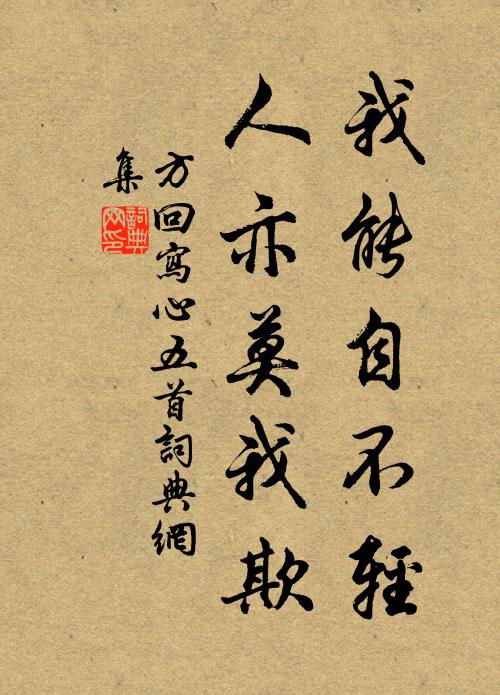 我能自不輕
人亦莫我欺
方回寫心五首詞典網
集
詞典
网印